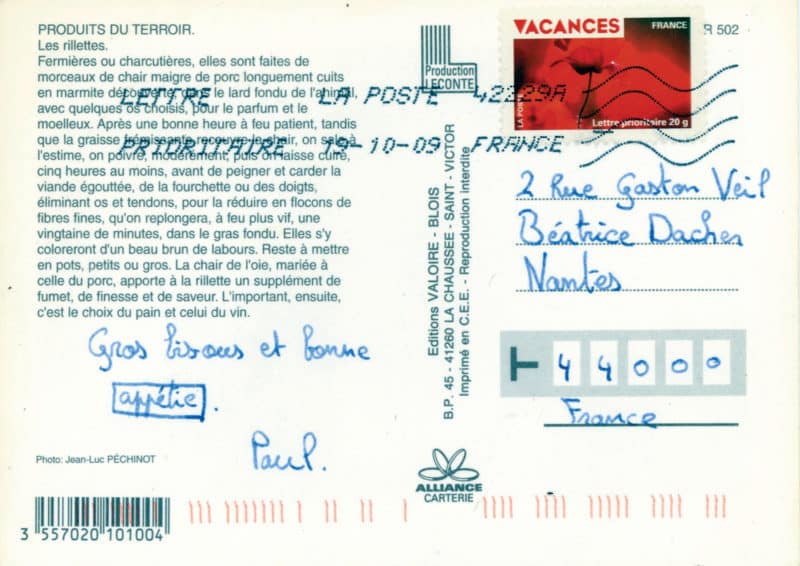 PRODUITS DU TERROIR.
Les rillettes.
Fermières ou charcutières, elles sont faites de
morceaux de chair maigre de porc longuement cuits
en marmite découverte dans le lard fondu de l'animal,
avec quelques os choisis, pour le parfum et le
moelleux. Après une bonne heure à feu patient, tandis
que la graisse frémissante recouvre la chair, on sale à
l'estime, on poivre, modérément, puis on laisse cuire,
cinq heures au moins, avant de peigner et carder la
viande égouttée, de la fourchette ou des doigts,
éliminant os et tendons, pour la réduire en flocons de
fibres fines, qu'on replongera, à feu plus vif, une
vingtaine de minutes, dans le gras fondu. Elles s'y
coloreront d'un beau brun de labours. Reste à mettre
en pots, petits ou gros. La chair de l'oie, mariée à
celle du porc, apporte à la rillette un supplément de
fumet, de finesse et de saveur. L'important, ensuite,
c'est le choix du pain et celui du vin.
Gros bisous et bonne
appétie.
Paul.
Photo: Jean-Luc PÉCHINOT
3 557020 101004
Production
LECONTE
LETTRE LA POSTE 42229A
PRIORITAIRE 19-10-09 FRANCE
Editions VALOIRE - BLOIS
B.P. 45 - 41260 LA CHAUSSEE - SAINT - VICTOR
Imprimé en C.E.E. - Reproduction interdite
ALLIANCE
CARTERIE
VACANCES
FRANCE
LA POSTE
Lettre prioritaire 20 g
R 502
2 Rue Gaston Veil
Béatrice Dacher
Nantes
44000
France